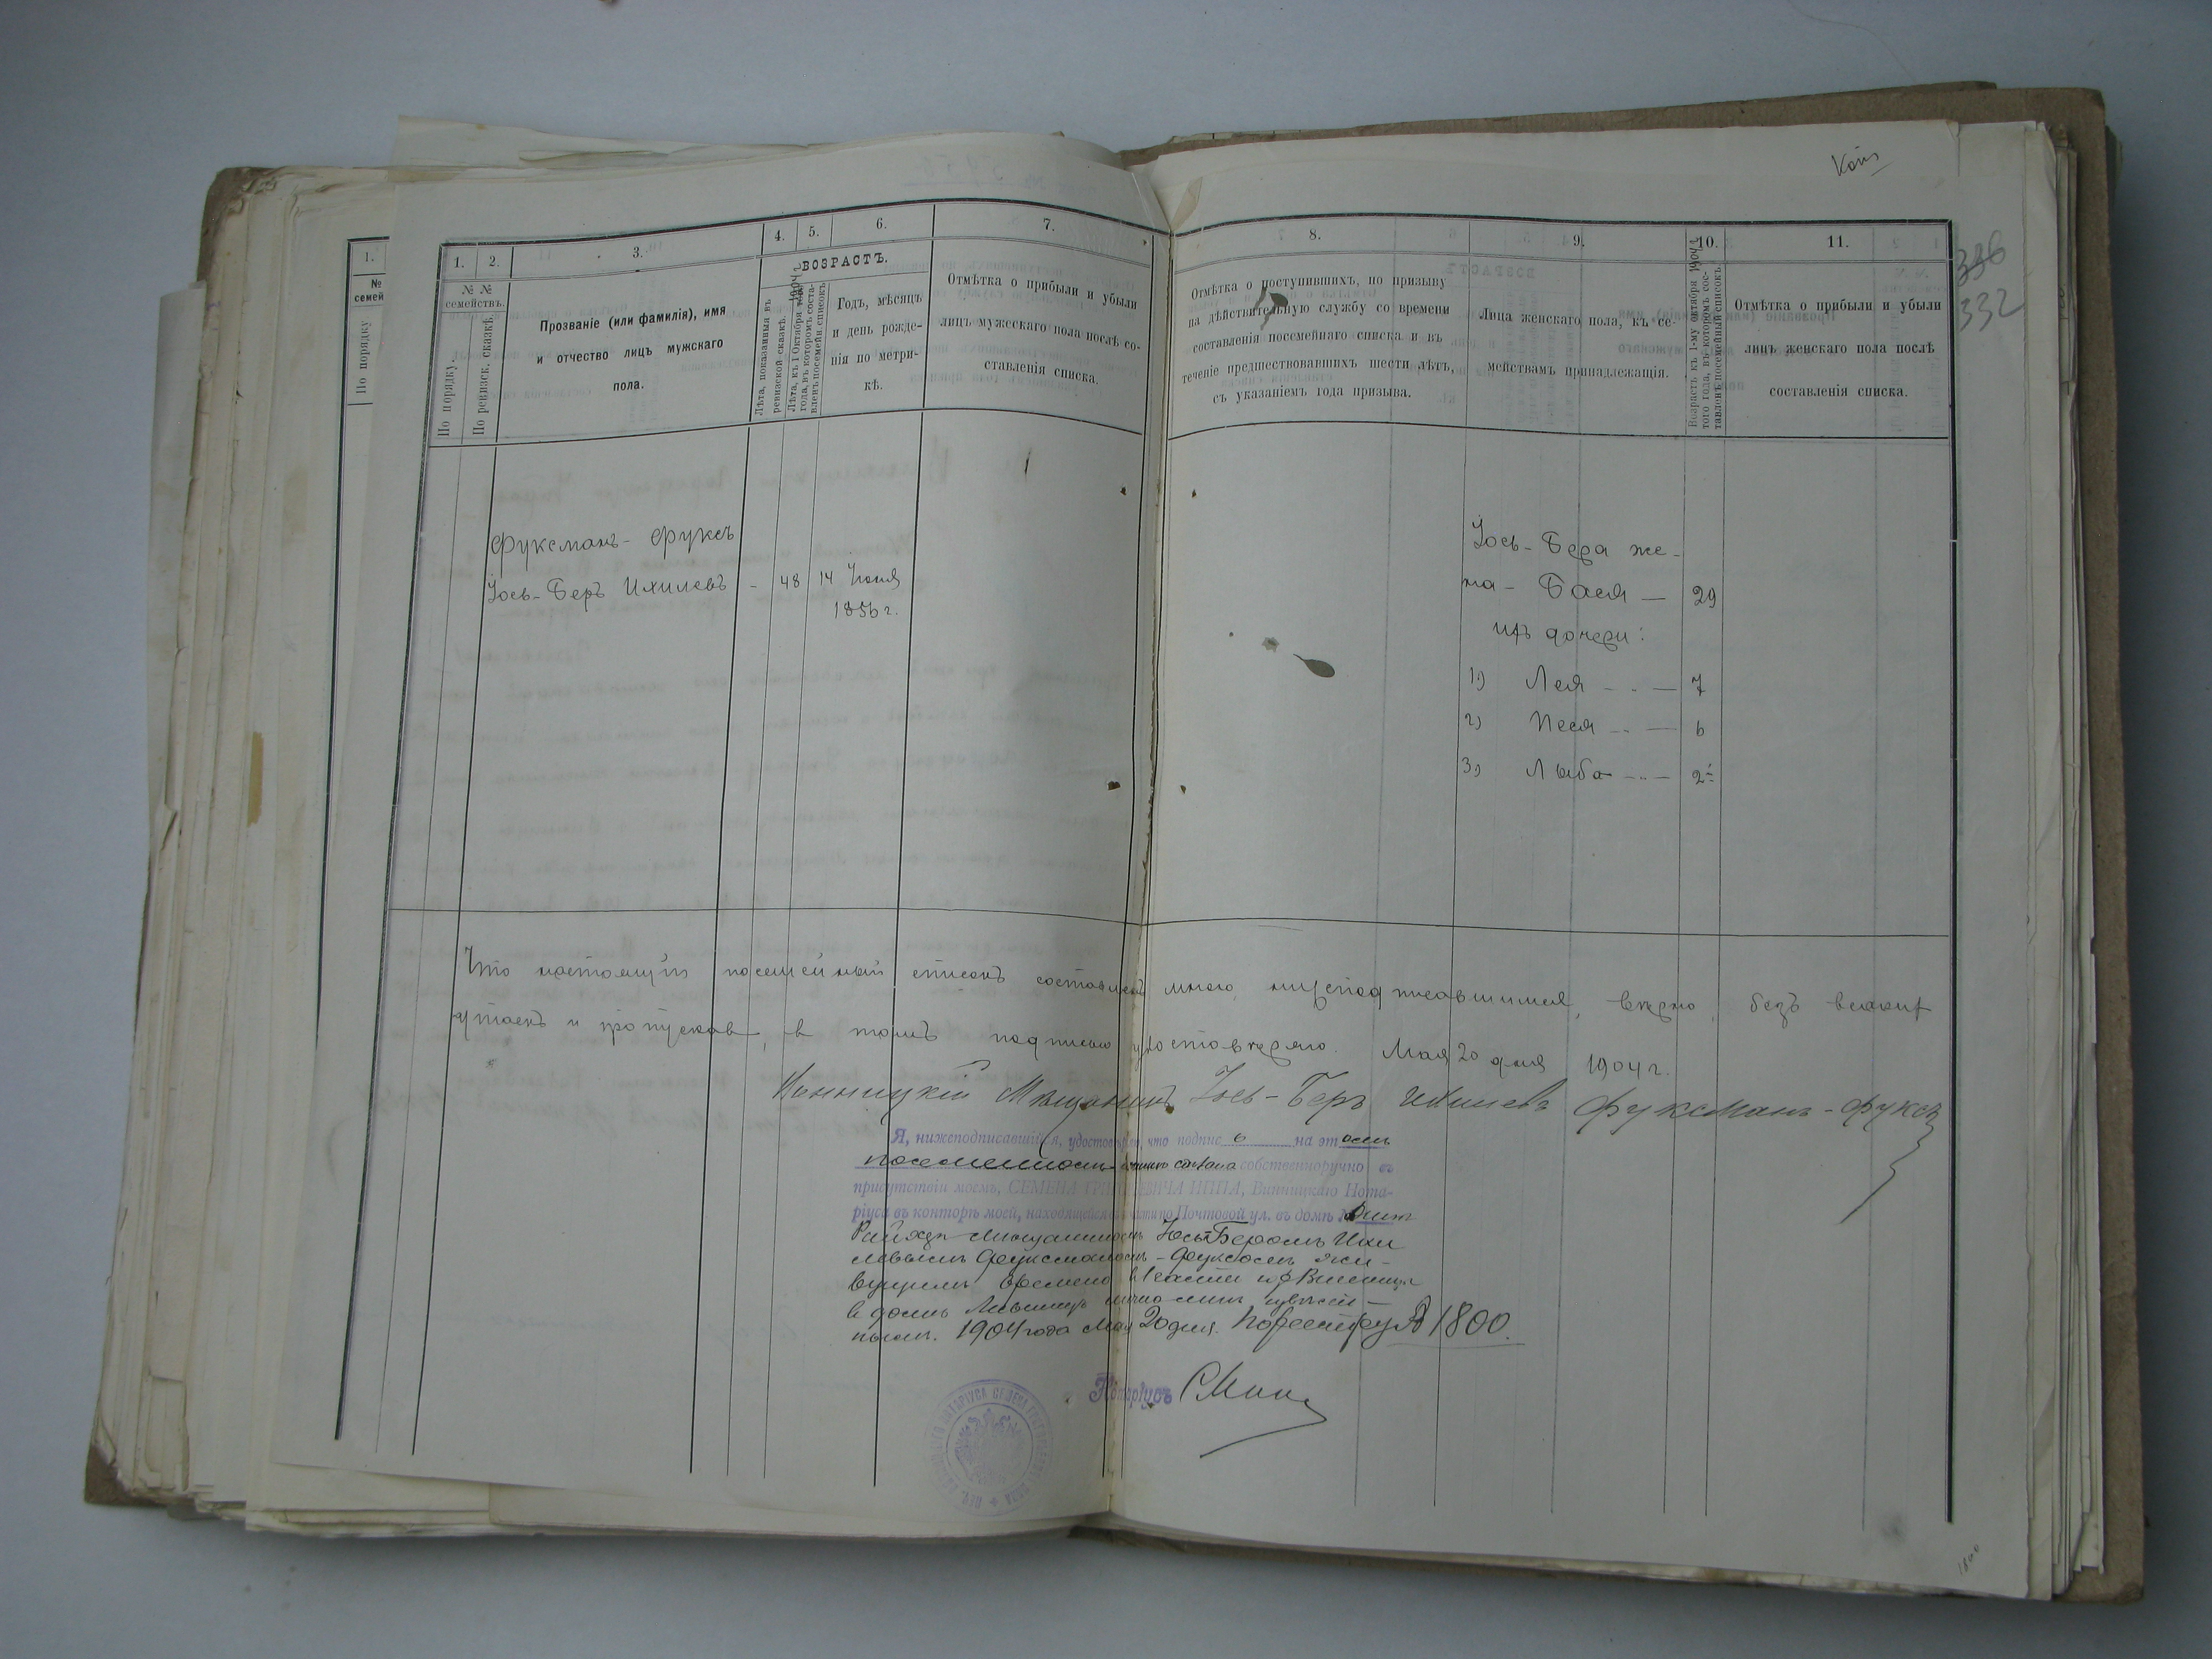 Коп.
336
332
1.
№
семей
По порядку
1.
2.
3.
4.
5.
6.
7.
8.
9.
10.
11.
№ №
семействъ.
По порядку.
По ревизск. сказкѣ.
Прозваніе (или фамилія), имя
и отчество лицъ мужскаго
пола.
ВОЗРАСТЪ.
Лѣта, показанныя въ
ревизской сказкѣ.
1904 г.
Лѣта, къ 1 Октября
года, въ которомъ соста-
вленъ посемейн. списокъ
Годъ, мѣсяцъ
и день рожде-
нія по метри-
кѣ.
Отмѣтка о прибыли и убыли
лицъ мужескаго пола послѣ со-
ставленія списка.
Отмѣтка о поступившихъ, по призыву
на дѣйствительную службу со времени
составленія посемейнаго списка и въ
теченіе предшествовавшихъ шести лѣтъ,
съ указаніемъ года призыва.
Лица женскаго пола, къ се-
мействамъ принадлежащія.
Возрастъ къ 1-му октября 1904 г.
того года, въ которомъ сос-
тавленъ посемейный списокъ.
Отмѣтка о прибыли и убыли
лицъ женскаго пола послѣ
составленія списка.
Фуксманъ-Фуксъ
Іось-Беръ Ихилевъ - 48 14 Іюня
1856 г.
Іось-Бера же-
на - Бася — 29
ихъ дочери:
1) Лея - .. — 7
2) Песя - .. — 6
3) Лыба - .. — 2
Что настоящій посемейный списокъ составленъ мною, нижеподписавшимся, вѣрно, безъ всякихъ
утаекъ и пропусковъ, въ томъ подписью удостовѣряю. Мая 20 дня 1904 г.
Мѣщанинъ Іось-Беръ Ихилевъ Фуксманъ-Фуксъ
Я, нижеподписавшійся, удостовѣряю, что подпись на этомъ
посемейномъ спискѣ сдѣлана собственноручно въ
присутствіи моемъ, СЕМЕНА ГРИГОРЬЕВИЧА Винницкаго Нота-
ріуса въ конторѣ моей, находящейся части по Почтовой ул. въ домѣ
мѣщаниномъ Іось-Беромъ Ихи
левымъ Фуксманомъ-Фуксомъ жи-
вущимъ временно въ части гор. Винницы
въ домѣ лично мнѣ извѣст-
нымъ. 1904 года Мая 20 дня. По реестру № 1800.
Нотаріусъ
1800